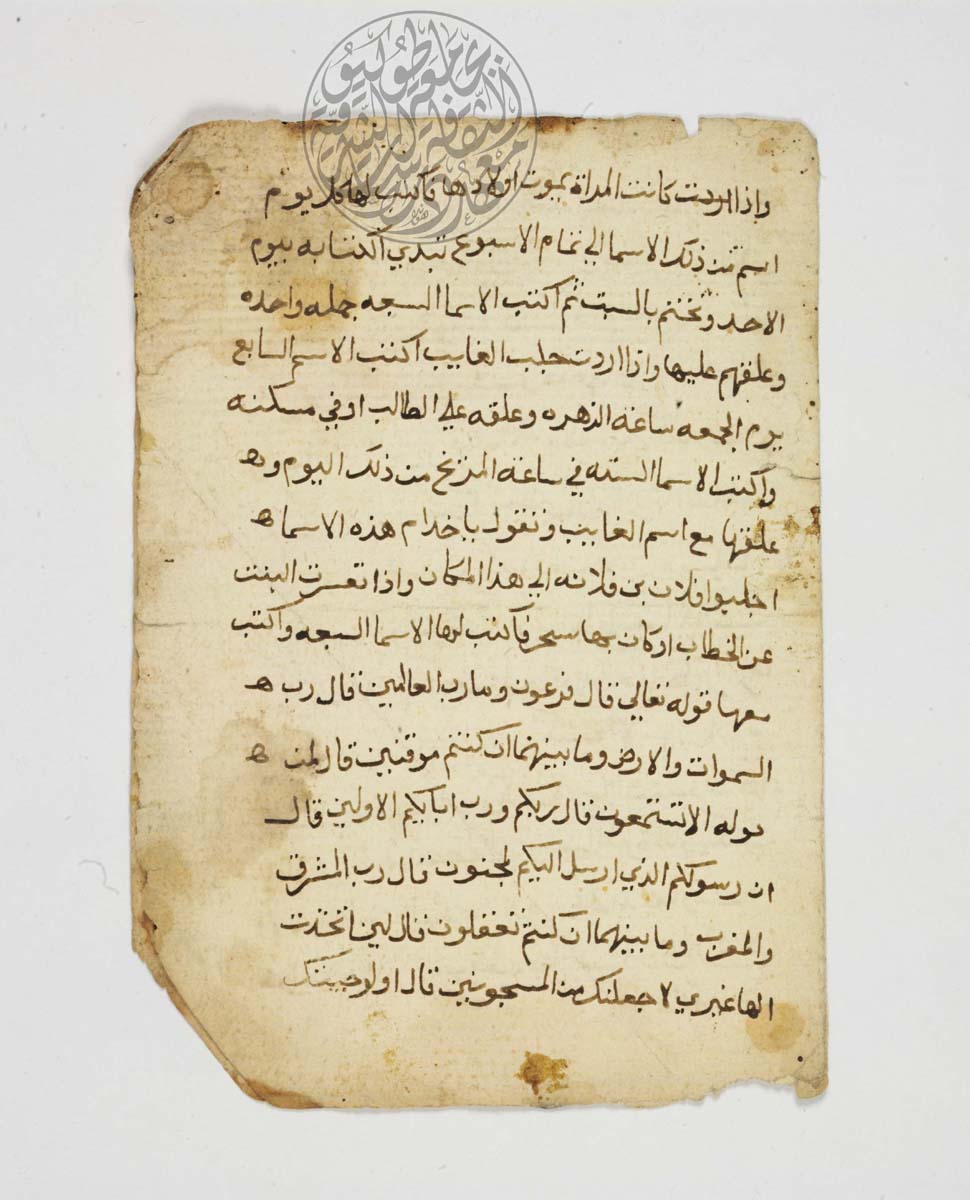 واذا اردت كانت المراة يموت اولادها فاكتب لها كل يوم
اسم من ذلك الاسما الي تمام الاسبوع تبدي الكتابه بيوم
الاحد وتختم بالسبت ثم اكتب الاسما السبعه جمله واحده
وعلقهم عليها واذا اردت جلب الغايب اكتب الاسم السابع
يوم الجمعه ساعة الزهره وعلقه علي الطالب او في مسكنه
واكتب الاسما السته في ساعة المريخ من ذلك اليوم و ه
علقها مع اسم الغايب وتقول ياخدام هذه الاسما ه
اجلبوا فلان بن فلانه الي هذا المكان واذا تعسرت البنت
عن الخطاب او كان بها سحر فاكتب لها الاسما السبعه واكتب
معها قوله تعالي قال فرعون وما رب العالمين قال رب ه
السموات والارض وما بينهما ان كنتم موقنين قال لمن ه
حوله الا تستمعون قال ربكم ورب ابايكم الاولين قال
ان رسولكم الذي ارسل اليكم لمجنون قال رب المشرق
والمغرب وما بينهما ان كنتم تعقلون قال لين اتخذت
الها غيري لاجعلنك من المسجونين قال اولو جيتك